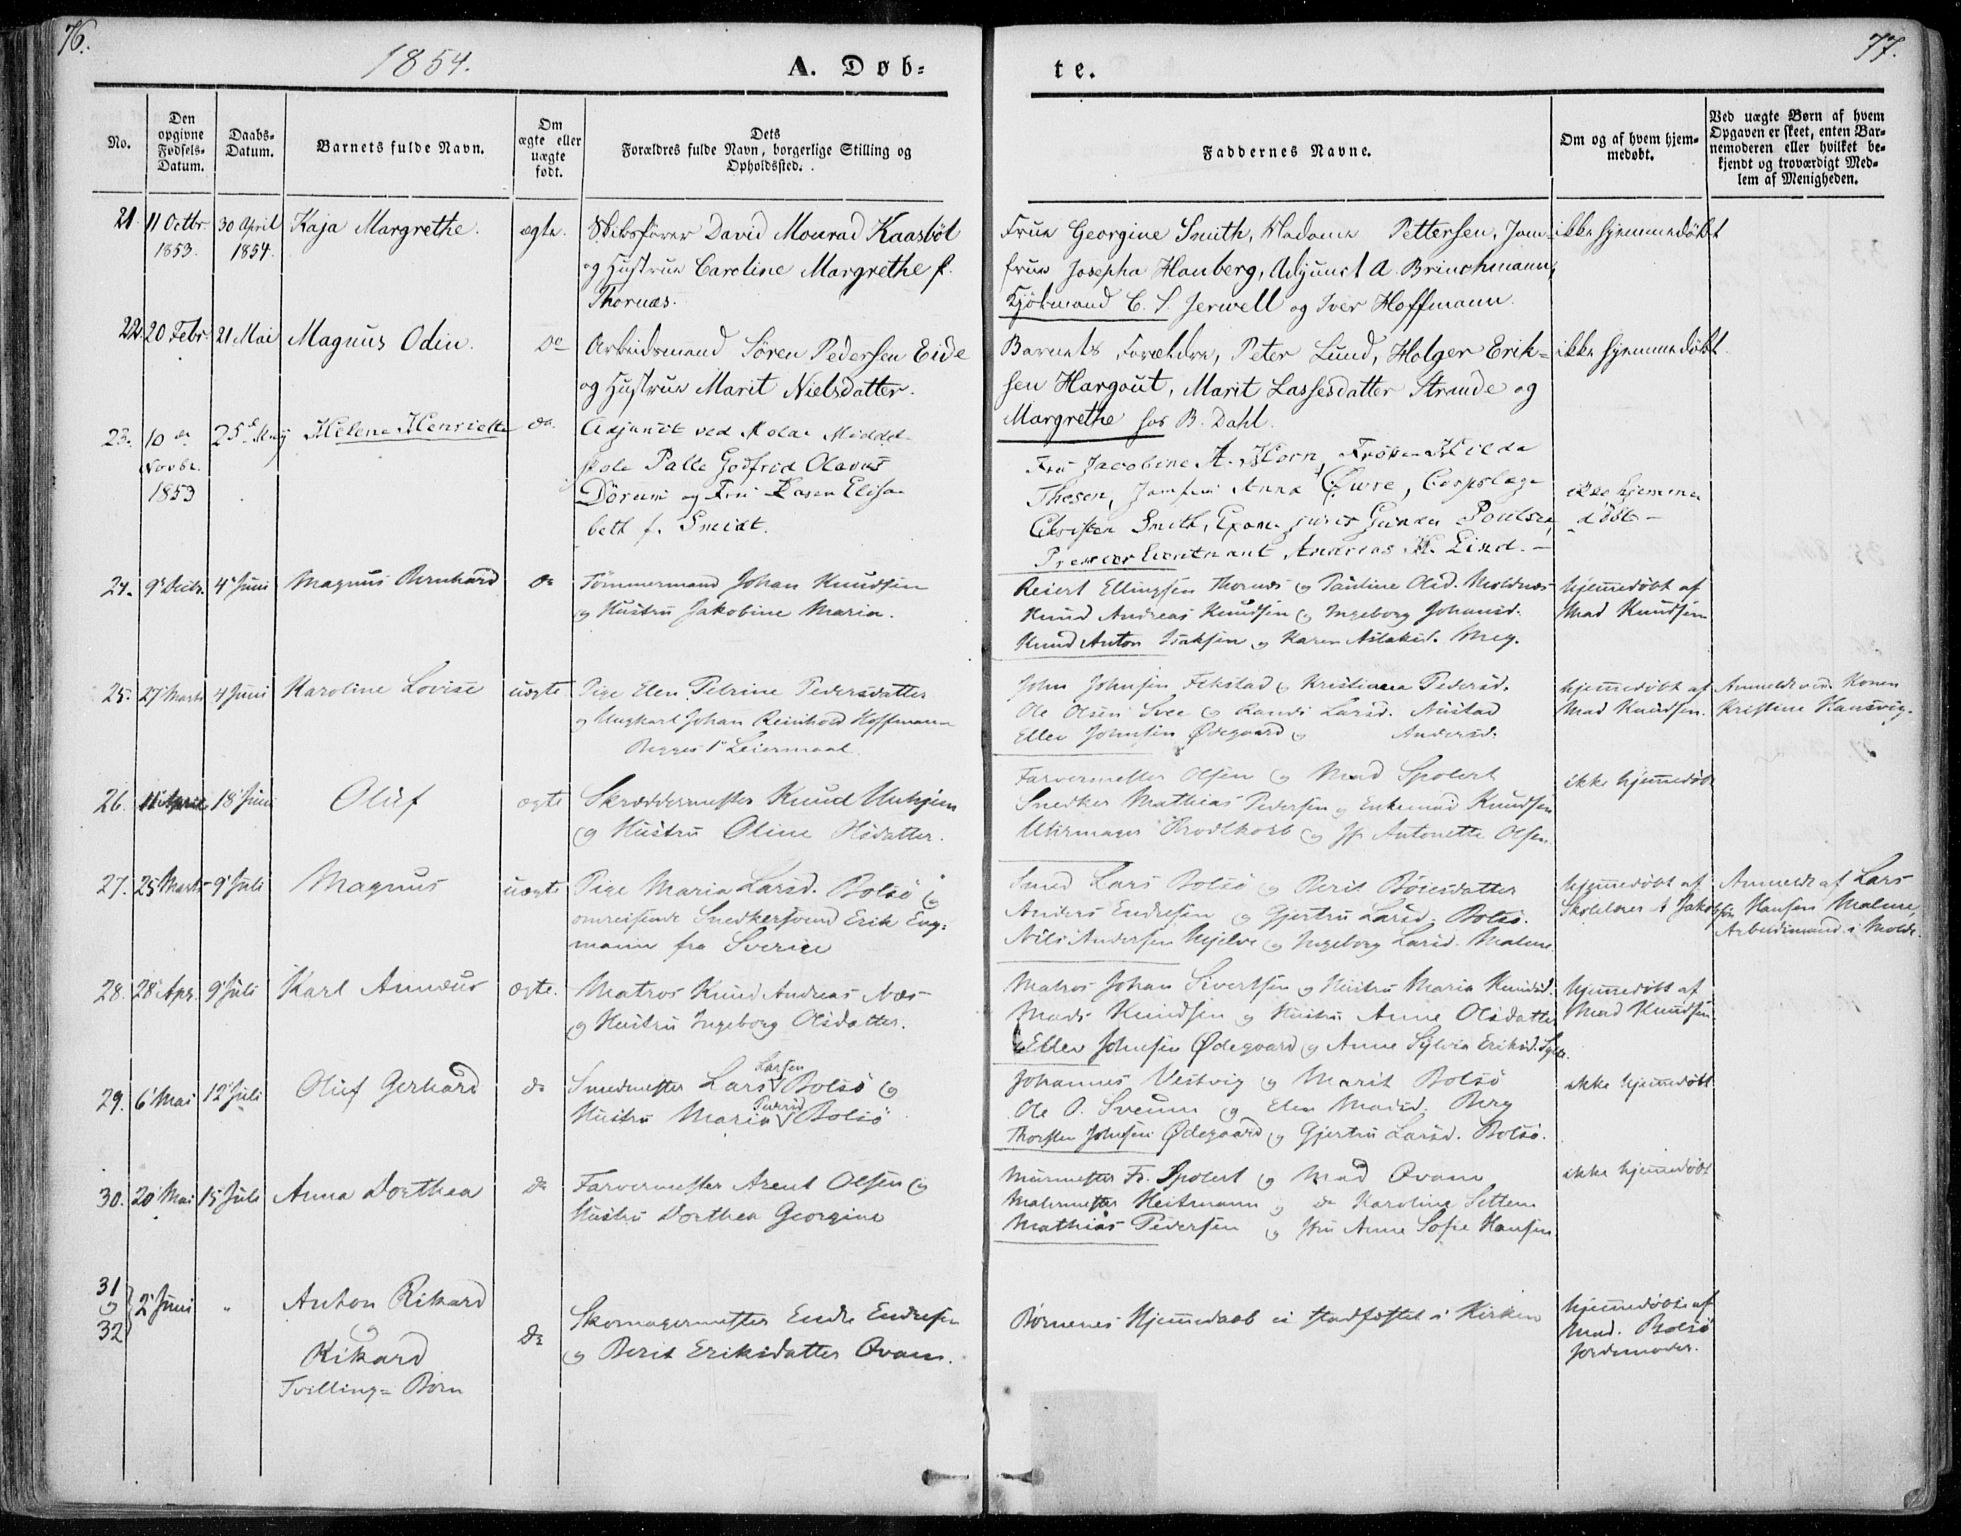 76.
1854.
A. Døb-
te.
77.
No.
Den opgivne Fødsels-Datum.
Daabs-Datum.
Barnets fulde Navn.
Om ægte eller uægte født.
Dets Forældres fulde Navn, borgerlige Stilling og Opholdssted.
Faddernes Navne.
Om og af hvem hjemmedøbt.
Ved uægte Børn af hvem Opgaven er skeet, enten Barnemoderen eller hvilket bekjendt og troværdigt Medlem af Menigheden.
21. 11 Octbr. 1853. 30 April 1854. Kaja Margrethe. ægte.
Skibsfører David Monrad Kaasbøl
og Hustrue Caroline Margrethe f.
Thornæs.
Frue Georgine Smith, Madame Pettersen, Jom-
frue Josepha Hanberg, Adjunct A. Brinchmann,
Kjøbmand C. S. Jerwell og Iver Hoffmann.
ikke hjemmedøbt
22. 20 Febr. 21 Mai Magnus Odin. do
Arbeidsmand Søren Pedersen Eide
og Hustrue Marit Nielsdatter.
Barnets Forældre, Peter Lund, Holger Erik-
sen Hargout, Marit Lassesdatter Strande og
Margrethe hos B. Dahl.
ikke hjemmedøbt.
23. 10de Novbr. 1853 25de Maj Helene Henriette do.
Adjunct ved Molde Middel-
skole Palle Godfrid Olavus
Dørum og Fru Karen Elisa-
beth f. Smidt.
Fru Jacobine A. Horn, Frøken Hilda
Thesen, Jomfru Anna Øwre, Corpslæge
Christen Smith, Exam. juris Gunder Poulsen,
Premierlieutenant Andreas K. Lind. -
ikke hjemme
døbt -
24. 9 Decbr. 4 Juni Magnus Bernhard do
Tømmermand Johan Knudsen
og Hustru Jakobine Maria.
Reiert Ellingsen Thornes og Pauline Olsd. Moldnæs
Knud Andreas Knudsen og Ingeborg Johansd.
Knud Anton Isaksen og Karen Aslaksd. Meg.
hjemmedøbt af
Mad Knudsen
25. 27 Marts 4 Juni Karoline Lovise uægte
Pige Elen Petrine Pedersdatter
og Ungkarl Johan Reinhold Hoffmann
Begges 1ste Leiermaal.
John Johnsen Fekstad og Kristiana Pedersd.
Ole Olsen Svee og Randi Larsd. Nustad
Ellev Johnsen Ødegaard og Andersd.
hjemmedøbt af
Mad Knudsen.
Anmeldt ved Konen
Kristine Hansvig.
26. 11 April 18 Juni Oluf ægte
Skræddermester Knud Unhjem
og Hustru Oline Olsdatter.
Farvermester Olsen og Mad Spolert
Snedker Mathias Pedersen og Enkemad Knudsen
Uhrmager Brodtkorb og Jf. Antonette Olsen.
ikke hjemmedøbt
27. 25 Marts 9 Juli Magnus uægte
Pige Maria Larsd. Bolsø og
omreisende Snedkersvend Erik Eng-
mann fra Sverige
Smed Lars Bolsø og Berit Bøiesdatter
Anders Endresen og Gjertru Larsd. Bolsø.
Nils Andersen Hjelve og Ingeborg Larsd. Malme.
hjemmedøbt af
Skolelærer A Jakobsen
Anmeldt af Lars
Hansen Malme,
Arbeidsmand i Molde.
28. 28 Apr. 9 Juli Karl Anneus ægte.
Matros Knud Andreas Næs
og Hustru Ingeborg Olsdatter.
Matros Johan Sivertsen og Hustru Maria Knudsd.
Mads Knudsen og Hustru Anne Olsdatter
Ellev Johnsen Ødegaard og Anne Sylvia Eriksd. Sylte.
hjemmedøbt af
Mad Knudsen.
29. 6 Mai 12 Juli Oluf Gerhard do
Smedmester Lars Larsen Bolsø og
Hustru Maria Pedersd Bolsø
Johannes Vestvig og Marit Bolsø
Ole O. Sveum og Elen Madsd. Berg
Thorsten Johnsen Ødegaard og Gjertru Larsd. Bolsø.
ikke hjemmedøbt.
30. 20 Mai 15 Juli Anna Dorthea do
Farvermester Arent Olsen og
Hustru Dorthea Georgine
Muurmester Fr. Spolert og Mad Qvam
Malermester Heitmann og do Karoline Settem
Mathias Pedersen og Jfru Anne Sofie Hansen
ikke hjemmedøbt
31 og 32 2 Juni " Anton Rikard
og
Rikard
Tvilling-Børn
do
Skomagermester Endre Endresen
og Berit Eriksdatter Qvam.
Børnenes Hjemmedaab ei stadfæstet i Kirken
hjemmedøbte af
Mad. Bolsø
Jordemoder.